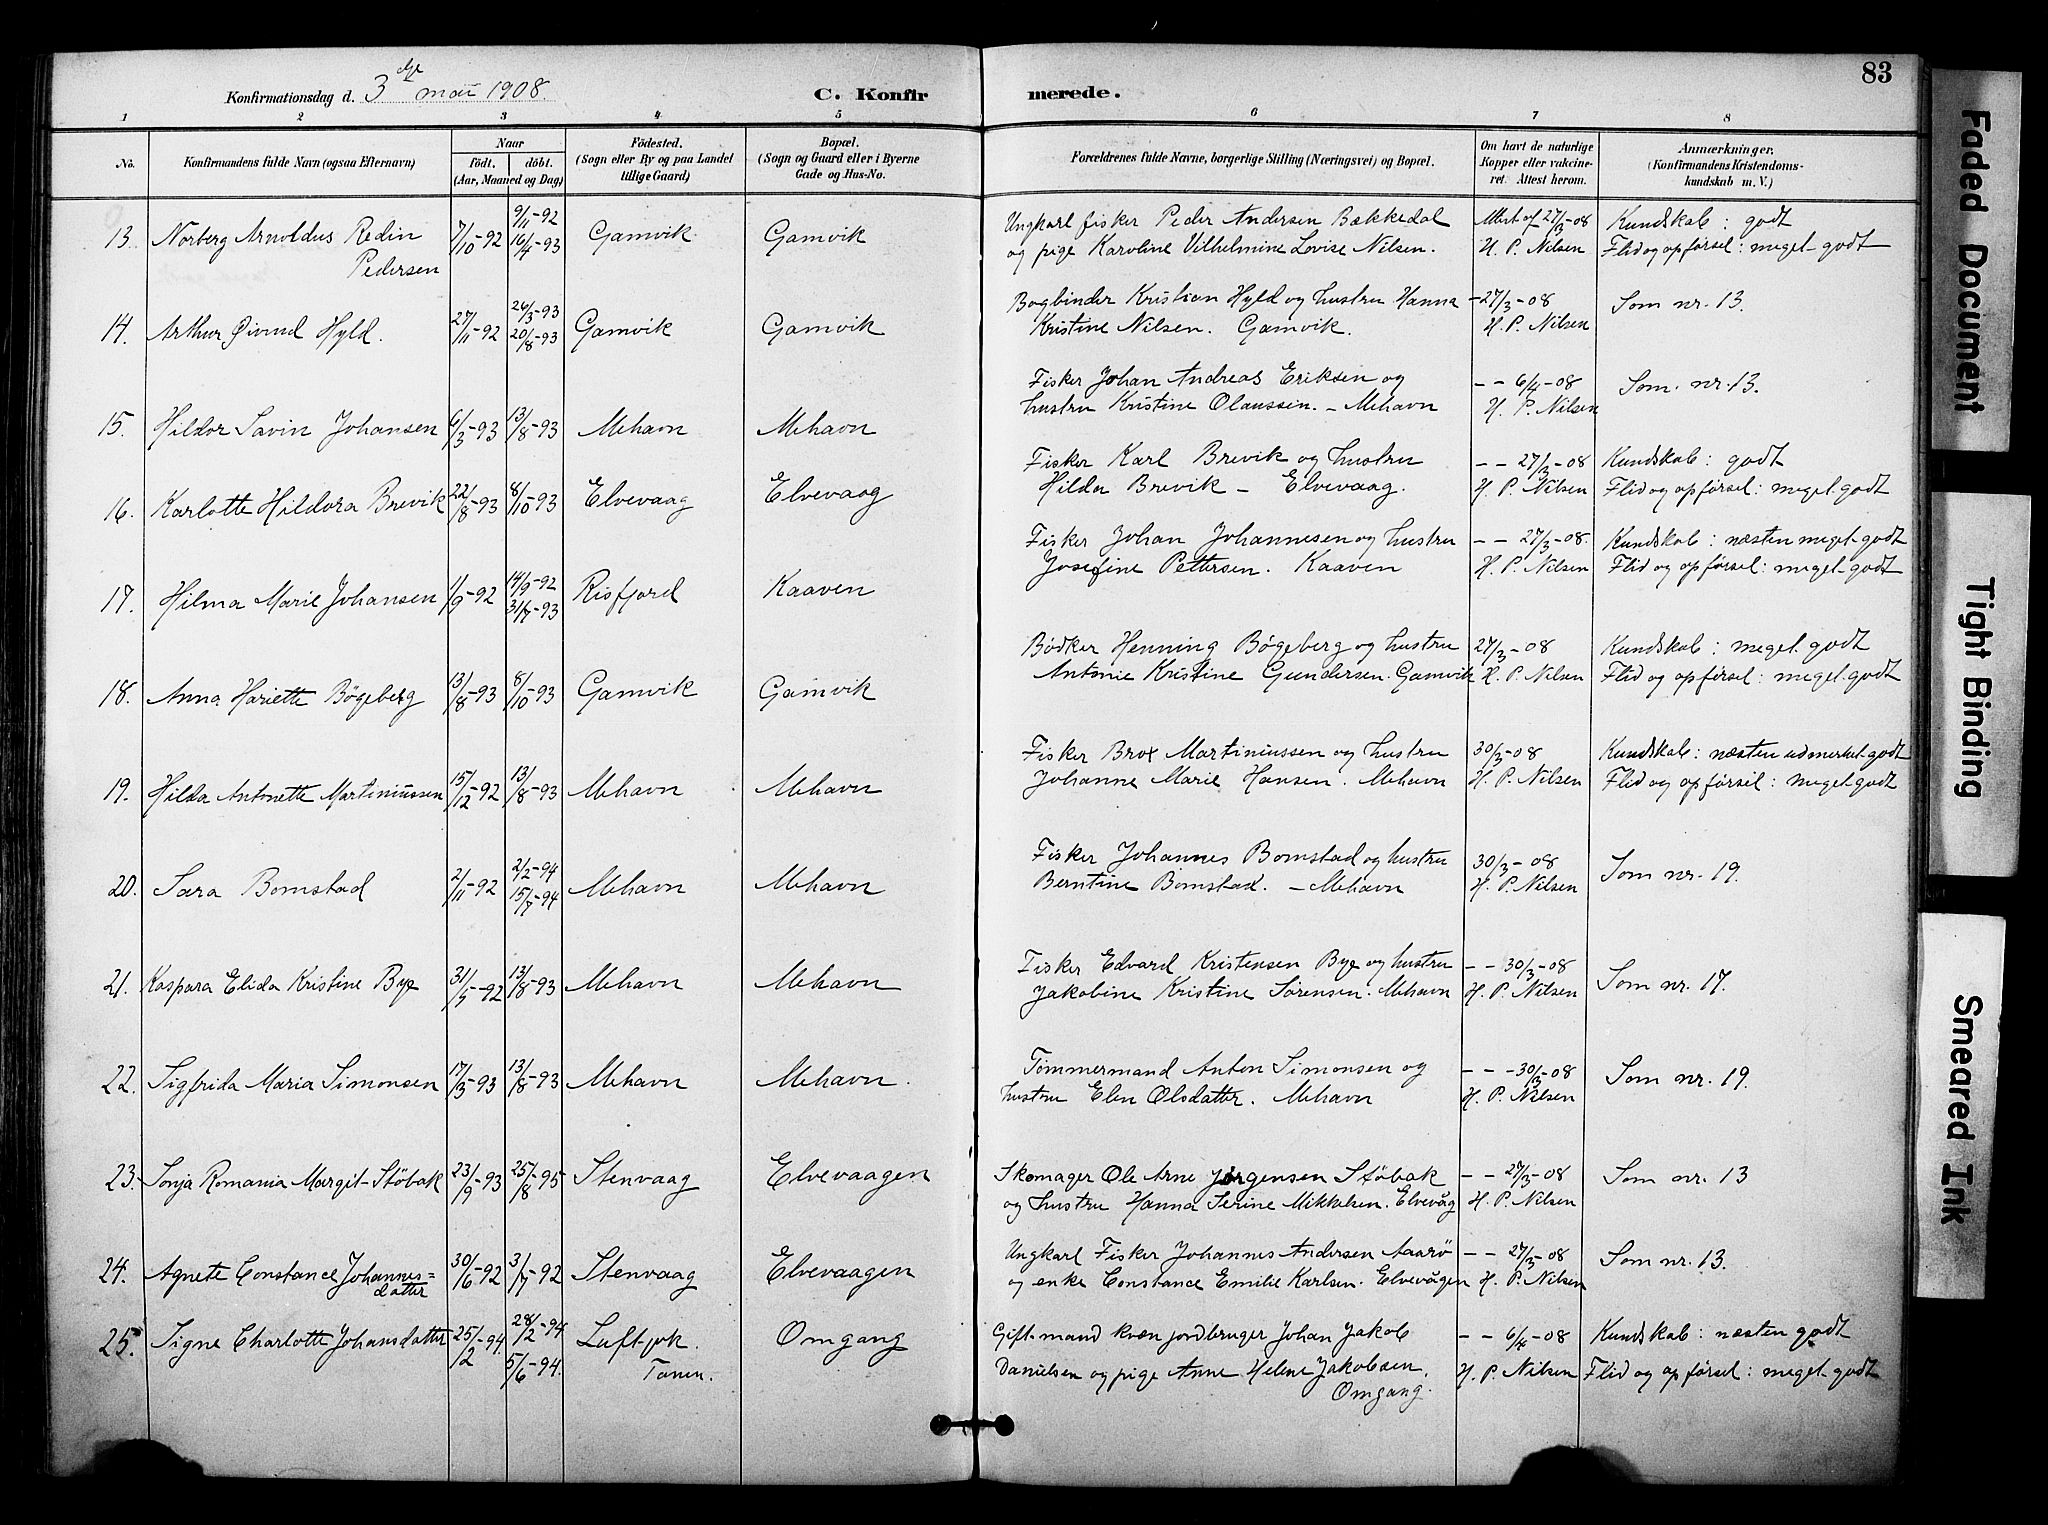 83
Konfirmationsdag d. 3die mai 1908. C. Konfirmerede.
1 2 3 4 5 6 7 8
No. Konfirmandens fulde Navn (ogsaa Efternavn) Naar født. døbt. (Aar, Maaned og Dag) Fødested. (Sogn eller By og paa Landet tillige Gaard) Bopæl. (Sogn og Gaard eller i Byerne Gade og Hus-No. Forældrenes fulde Navne, borgerlige Stilling (Næringsvei) og Bopæl. Om havt de naturlige Kopper eller vakcineret. Attest herom. Anmærkninger, (Konfirmandens Kristendomskundskab m. V.)
13. Norberg Arnoldus Redin Pedersen 7/10-92 9/11-92 16/4-93 Gamvik Gamvik Ungkarl fisker Peder Andersen Bækkedal
og pige Karoline Vilhelmine Lovise Nilsen. Attest af 27/3-08 H. P. Nilsen Kundskab: godt
Flid og opførsel: meget godt
14. Arthur Øivind Hyld. 27/11-92 26/3-93 20/8-93 Gamvik Gamvik Bogbinder Kristian Hyld og hustru Hanna
Kristine Nilsen. Gamvik. -27/3-08 H. P. Nilsen Som nr. 13.
15. Hildor Savin Johansen 6/3-93 13/8-93 Mehavn Mehavn Fisker Johan Andreas Eriksen og
hustru Kristine Olaussen. - Mehavn - - 6/4-08 H. P. Nilsen Som. nr. 13.
16. Karlotte Hildora Brevik 22/8-93 8/10-93 Elvevaag Elvevaag Fisker Karl Brevik og hustru
Hilda Brevik - Elvevaag. - - 27/3-08 H. P. Nilsen Kundskab: godt
Flid og opførsel: meget godt
17. Hilma Marie Johansen 1/9-92 14/9-92 31/7-93 Risfjord Kaaven Fisker Johan Johannesen og hustru
Josefine Pettersen. Kaaven - - 27/3-08. H. P. Nilsen Kundskab: næsten meget godt
Flid og opførsel: meget godt
18. Anna Hariette Bøgeberg 13/8-93 8/10-93 Gamvik Gamvik Bødker Henning Bøgeberg og hustru
Antonie Kristine Gundersen. Gamvik 27/3-08 H. P. Nilsen Kundskab: meget godt
Flid og opførsel: meget godt
19. Hilda Antonette Martiniussen 15/12-92 13/8-93 Mehavn Mehavn Fisker Brox Martiniussen og hustru
Johanne Marie Hansen. Mehavn 30/3-08 H. P. Nilsen Kundskab: næsten udmerket godt
Flid og opførsel: meget godt
20. Sara Bomstad 2/11-92 2/2-94 15/7-94 Mehavn Mehavn Fisker Johannes Bomstad og hustru
Berntine Bomstad. - Mehavn 30/3-08 H. P. Nilsen Som nr. 19.
21. Kaspara Elida Kristine Bye 31/5-92 13/8-93 Mehavn Mehavn Fisker Edvard Kristensen Bye og hustru
Jakobine Kristine Sørensen. Mehavn - - 30/3-08 H. P. Nilsen Som nr. 17.
22. Sigfrida Maria Simonsen 17/3-93 13/8-93 Mehavn Mehavn. Tømmermand Anton Simonsen og
hustru Elen Olsdatter. Mehavn - - -30/3-08 H. P. Nilsen Som nr. 19.
23. Sonja Romania Margit Støbak 23/9-93 25/8-95 Stenvaag Elvevaagen Skomager Ole Arne Jørgensen Støbak
og hustru Hanna Serine Mikkelsen. Elvevåg - - 27/3-08 H. P. Nilsen Som nr. 13
24. Agnete Constance Johannesdatter 30/6-92 3/7-92 Stenvaag Elvevaagen Ungkarl Fisker Johannes Andersen Aarø
og enke Constance Emilie Karlsen. Elvevågen - - 27/3-08 H. P. Nilsen Som nr. 13.
25. Signe Charlotte Johansdatter 25/2-94. 28/2-94 5/6-94. Luftjok. Tanen. Omgang Gift mand kvæn jordbruger Johan Jakob
Danielsen og pige Anne Helene Jakobsen. Omgang. - - 6/4-08 H. P. Nilsen Kundskab: næsten godt
Flid og opførsel: meget godt
Faded Document
Tight Binding
Smeared Ink